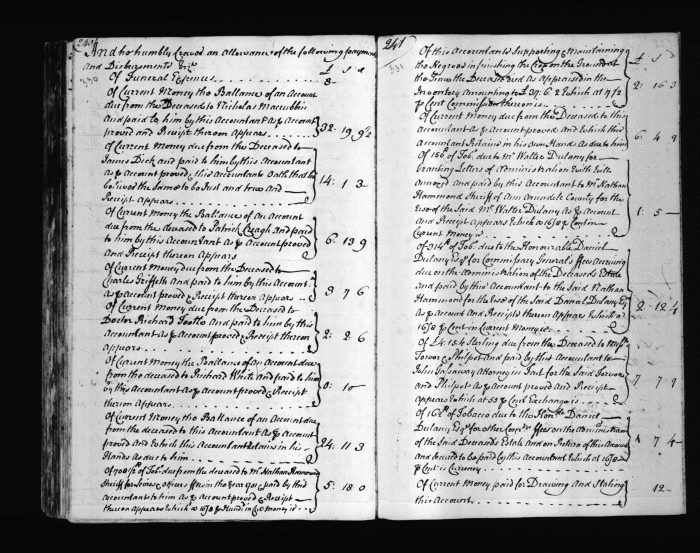 240
And he humbly Craves an allowance of the following payments
and Disbursments viz
330
£ s d
Of Funeral Expences 8
Of Current Money the Ballance of an Account
due from the Deceased to Nicholas Maccubbin
and paid to him by this Accountant as ꝑ Account
proved and Receipt thereon Appears 92 19 9½
Of Current Money due from the Deceased to
James Dick and paid to him by this Accountant
as ꝑ Account proved & this Accountants Oath that he
believed the same to be Just and true and
Receipt Appears 14 1 3
Of Current Money the Ballance of an Account
due from the deceased to Patrick Creagh and paid
to him by this Accountant as ꝑ Account proved
and Receipt thereon Appears 6 13 9
Of Current Money due from the Deceased to
Charles Griffith and paid to him by this Accountant
as ꝑ Account proved & Receipt thereon Appears 3 7 6
Of Current Money due from the Deceased to
Doctor Richard Tootle and paid to him by this
Accountant as ꝑ Account proved & Receipt thereon
appears 2 2 6
Of Current Money the Ballance of an Account due
from the deceased to Richard White and paid to him
by this Accountant as ꝑ Account proved & Receipt
thereon Appears 10
Of Current Money the Ballance of an Account due
from the deceased to this Accountant as ꝑ Account
proved and Which this Accountant Retains in his
Hands as due to him 24 11 3
of Tob. due from the deceased to Mr Nathan Hammond
Sheriff for paid by this
Accountant to him as ꝑ Account proved & Receipt
thereon Appears Which 5 18 0
241
331
£ s d
Of this Accountants Supporting & Maintaining
the Negroes in finishing the Crop on the Ground at
the time the Deceased died as Appraised in the
Inventory amounting to £27.6.2 Which at 7½
ꝑ Cent Commission thereon is 2 16 3
Of Current Money due from the Deceased to this
Accountant as ꝑ Account proved and Which this
Accountant Retains in his Own Hands As due to him 6 4 9
Of Tob. due to Mr Walter Dulany for
Granting Letters of Administration with Will
Annexed and paid by this Accountant to Mr Nathan
Hammond Sheriff of Ann Arundel County for the
Use of the Said Mr Walter Dulany as ꝑ Account
and Receipt Appears Which at 16/8 ꝑ Cent in
Current Money is 1 5
Of Tob. due to the Honourable Daniel
Dulany Esqr for Commissary Generals ffees Accruing
due on the Administration of the Deceaseds Estate
and paid by this Accountant to the Said Nathan
Hammond for the Use of the Said Daniel Dulany Esq
as ꝑ Account and Receipts thereon Appears Which at
16/8 ꝑ Cent in Current Money is 2 12 4
Of Sterling due from the Deceased to Messrs
and Philpot and paid by this Accountant to
John Galloway Attorney in Fact for the Said
and Philpot as ꝑ Account proved and Receipt
Appears Which at ꝑ Cent Exchange is 7 7 9
Of of Tobacco due to the Honble Daniel
Dulany Esqr for other ffees on the Administration
of the Said Deceaseds Estate and on Return of this Account
and Secured to be paid by this Accountant Which at 16/8
ꝑ Cent is Currency 7 4
Of Current Money paid for Drawing and Stating
this Account 12